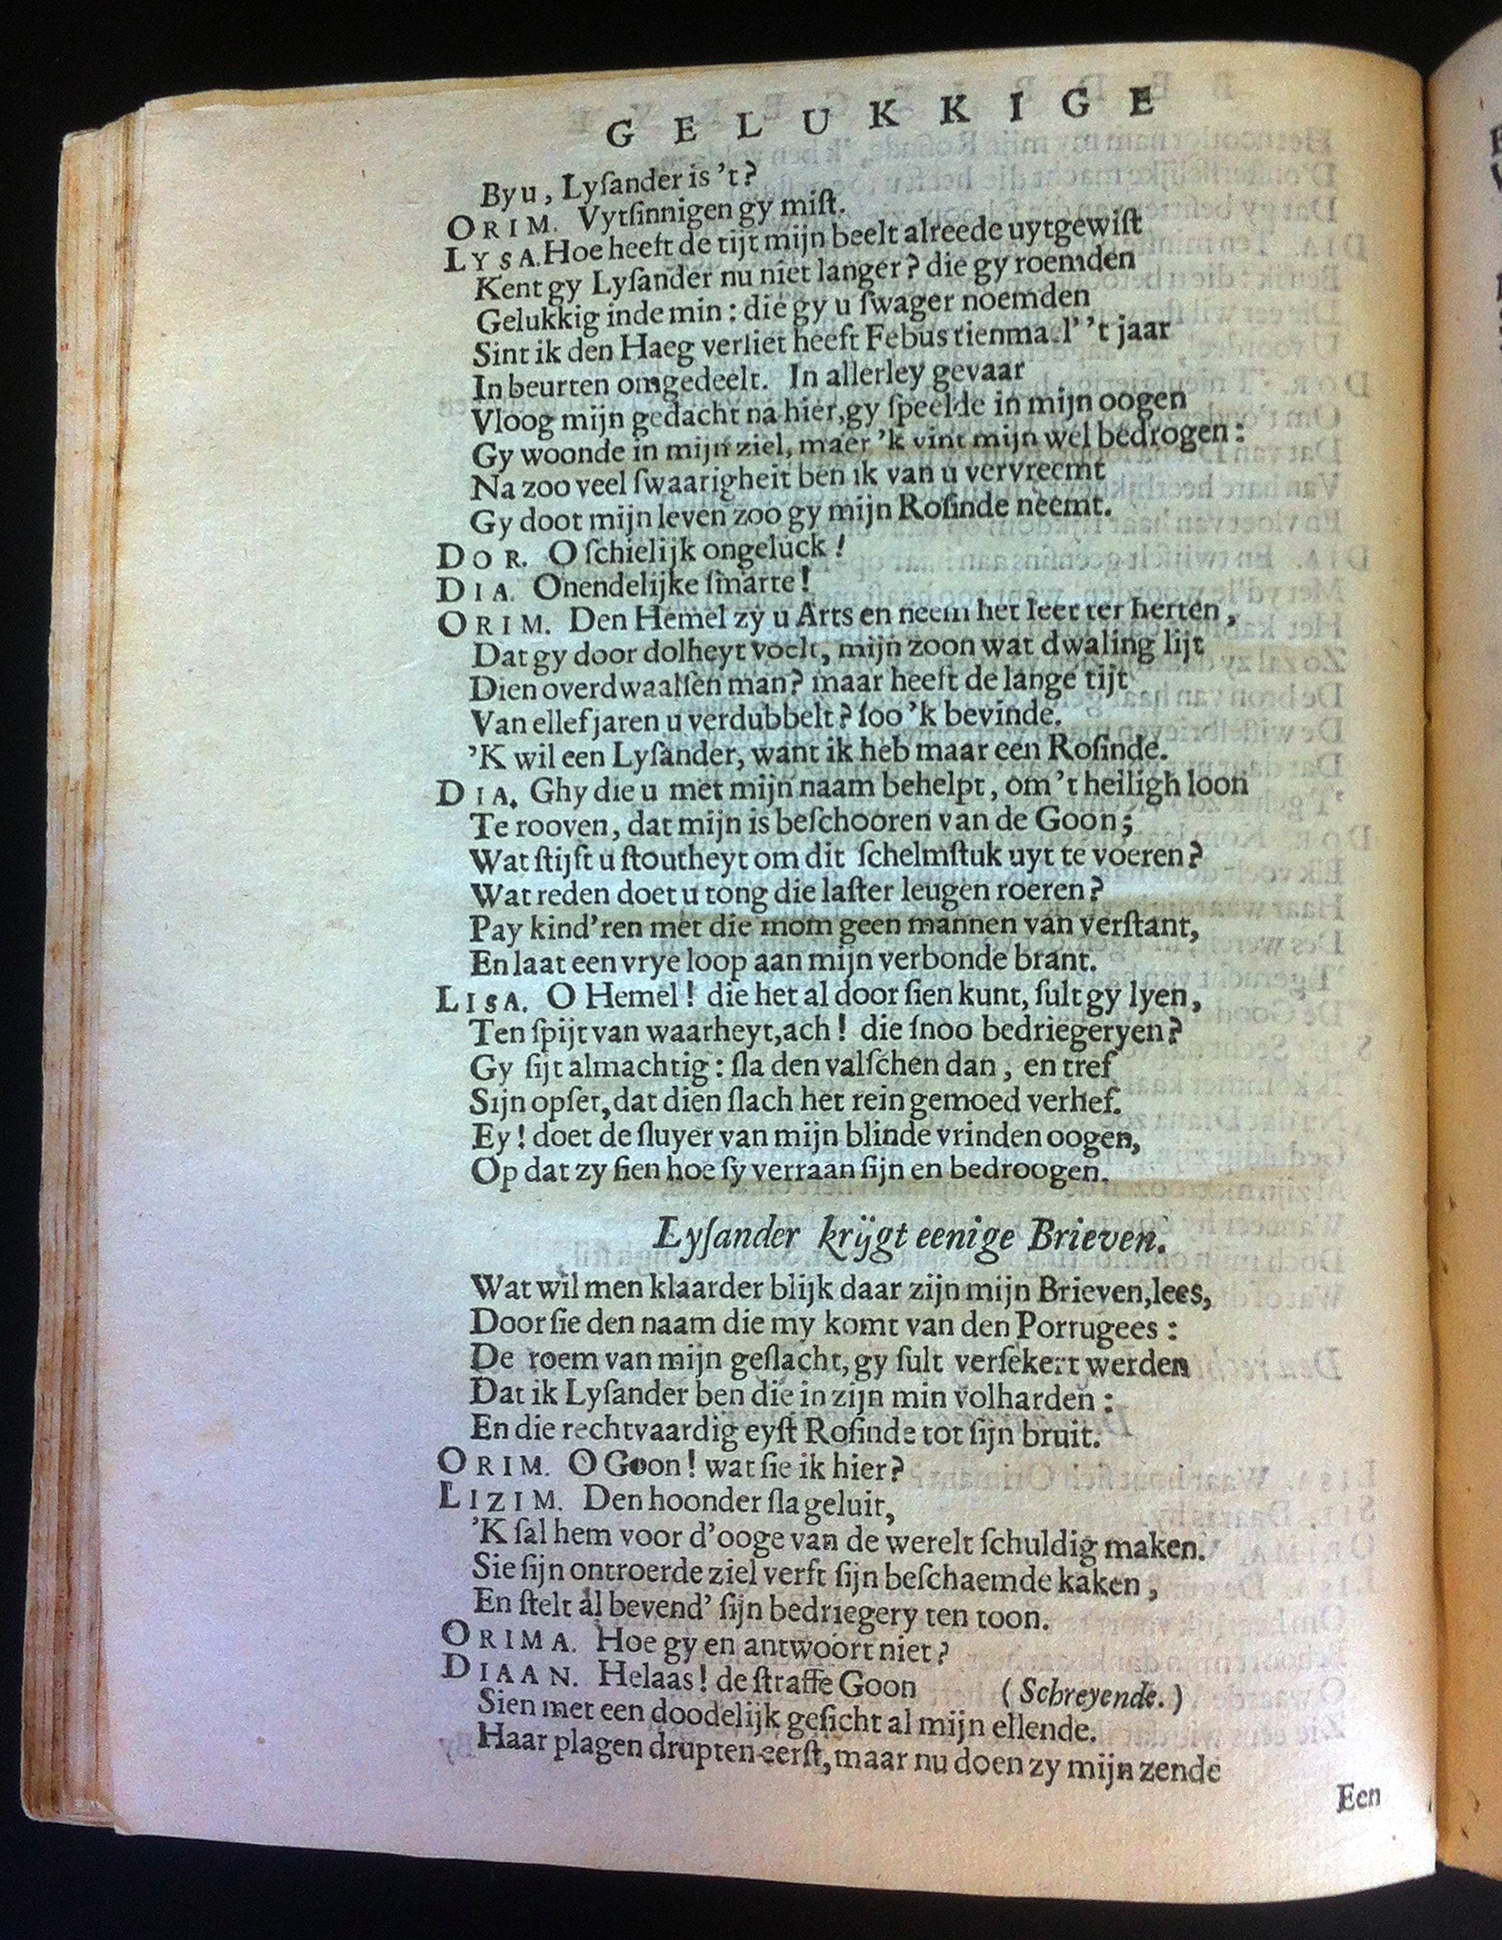 GELUKKIGE
By u, Lyſander is 't?
ORIM. Vytſinnigen gy miſt.
LYSA. Hoe heeft de tijt mijn beelt alreede uytgewiſt
Kent gy Lyſander nu niet langer? die gy roemden
Gelukkig inde min: die gy u ſwager noemden
Sint ik den Haeg verliet heeft Febus tienmael' 't jaar
In beurten omgedeelt. In allerley gevaar
Vloog mijn gedacht na hier, gy ſpeelde in mijn oogen
Gy woonde in mijn ziel, maer 'k vint mijn wel bedrogen:
Na zoo veel ſwaarigheit ben ik van u vervreemt
Gy doot mijn leven zoo gy mijn Roſinde neemt.
DOR. O ſchielijk ongeluck!
DIA. Onendelijke ſmarte!
ORIM. Den Hemel zy u Arts en neem het leet ter herten,
Dat gy door dolheyt voelt, mijn zoon wat dwaling lijt
Dien overdwaalſen man? maar heeft de lange tijt
Van ellef jaren u verdubbelt? ſoo 'k bevinde.
'K wil een Lyſander, want ik heb maar een Roſinde.
DIA. Ghy die u met mijn naam behelpt, om 't heiligh loon
Te rooven, dat mijn is beſchooren van de Goon;
Wat ſtijft u ſtoutheyt om dit ſchelmſtuk uyt te voeren?
Wat reden doet u tong die laſter leugen roeren?
Pay kind'ren met die mom geen mannen van verſtant,
En laat een vrye loop aan mijn verbonde brant.
LISA. O Hemel! die het al door ſien kunt, ſult gy lyen,
Ten ſpijt van waarheyt, ach! die ſnoo bedriegeryen?
Gy ſijt almachtig: ſla den valſchen dan, en tref
Sijn opſet, dat dien ſlach het rein gemoed verhef.
Ey! doet de ſluyer van mijn blinde vrinden oogen,
Op dat zy ſien hoe ſy verraan ſijn en bedroogen.
Lyſander krijgt eenige Brieven.
Wat wil men klaarder blijk daar zijn mijn Brieven, lees,
Door ſie den naam die my komt van den Porrugees:
De roem van mijn geſlacht, gy ſult verſekert werden
Dat ik Lyſander ben die in zijn min volharden:
En die rechtvaardig eyſt Roſinde tot ſijn bruit.
ORIM. O Goon! wat ſie ik hier?
LIZIM. Den hoonder ſla geluit,
'K ſal hem voor d'ooge van de werelt ſchuldig maken.
Sie ſijn ontroerde ziel verft ſijn beſchaemde kaken,
En ſtelt al bevend' ſijn bedriegery ten toon.
ORIMA. Hoe gy en antwoort niet?
DIAAN. Helaas! de ſtraffe Goon (Schreyende.)
Sien met een doodelijk geſicht al mijn ellende.
Haar plagen drupten eerſt, maar nu doen zy mijn zende
Een